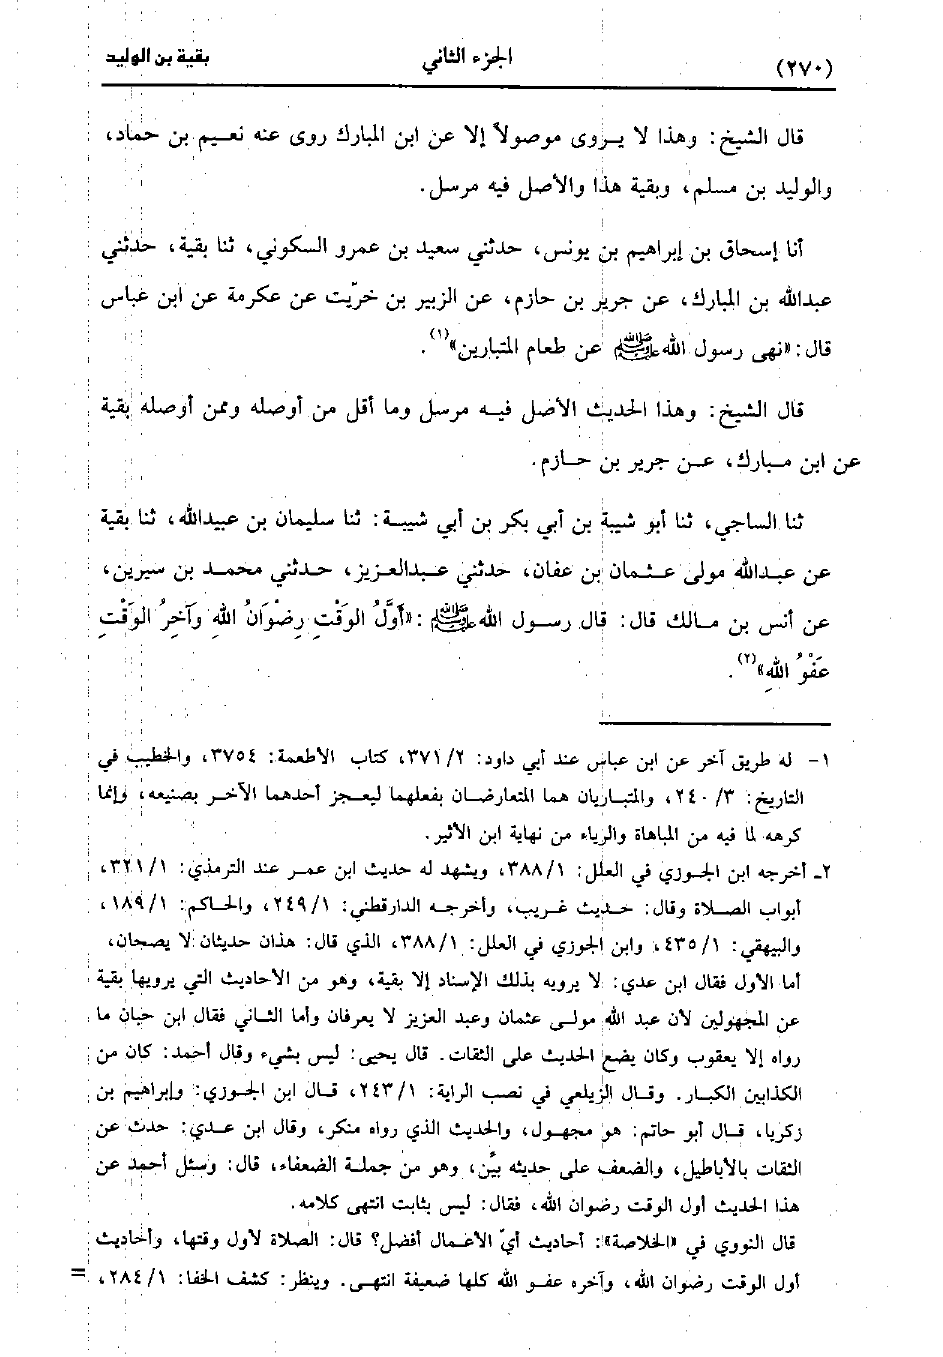 (٢٧٠) الجزء الثاني بقية بن الوليد
قال الشيخ: وهذا لا يروى موصولاً إلا عن ابن المبارك روى عنه نعيم بن حماد،
والوليد بن مسلم، وبقية هذا والأصل فيه مرسل.
أنا إسحاق بن إبراهيم بن يونس، حدثني سعيد بن عمرو السكوني، ثنا بقية، حدثني
عبدالله بن المبارك، عن جرير بن حازم، عن الزبير بن خرّيت عن عكرمة عن ابن عباس
قال: «نهى رسول الله ﷺ عن طعام المتبارين»(١).
قال الشيخ: وهذا الحديث الأصل فيه مرسل وما أقل من أوصله وممن أوصله بقية
عن ابن مبارك، عن جرير بن حازم.
ثنا الساجي، ثنا أبو شيبة بن أبي بكر بن أبي شيبة: ثنا سليمان بن عبيدالله، ثنا بقية
عن عبدالله مولى عثمان بن عفان، حدثني عبدالعزيز، حدثني محمد بن سيرين،
عن أنس بن مالك قال: قال رسول الله ﷺ: «أَوَّلُ الوَقْتِ رِضْوَانُ اللهِ وَآخِرُ الوَقْتِ
عَفْوُ اللهِ»(٢).
١- له طريق آخر عن ابن عباس عند أبي داود: ٣٧١/٢، كتاب الأطعمة: ٣٧٥٤، والخطيب في
التاريخ: ٢٤٠/٣، والمتباريان هما المتعارضان بفعلهما ليعجز أحدهما الآخر بصنيعه، وإنما
كرهه لما فيه من المباهاة والرياء من نهاية ابن الأثير.
٢- أخرجه ابن الجوزي في العلل: ٣٨٨/١، ويشهد له حديث ابن عمر عند الترمذي: ٣٢١/١،
أبواب الصلاة وقال: حديث غريب، وأخرجه الدارقطني: ٢٤٩/١، والحاكم: ١٨٩/١،
والبيهقي: ٤٣٥/١، وابن الجوزي في العلل: ٣٨٨/١، الذي قال: هذان حديثان لا يصحان،
أما الأول فقال ابن عدي: لا يرويه بذلك الإسناد إلا بقية، وهو من الأحاديث التي يرويها بقية
عن المجهولين لأن عبد الله مولى عثمان وعبد العزيز لا يعرفان وأما الثاني فقال ابن حبان ما
رواه إلا يعقوب وكان يضع الحديث على الثقات. قال يحيى: ليس بشيء وقال أحمد: كان من
الكذابين الكبار. وقال الزيلعي في نصب الراية: ٢٤٣/١، قال ابن الجوزي: وإبراهيم بن
زكريا، قال أبو حاتم: هو مجهول، والحديث الذي رواه منكر، وقال ابن عدي: حدث عن
الثقات بالأباطيل، والضعف على حديثه بيّن، وهو من جملة الضعفاء، قال: وسئل أحمد عن
هذا الحديث أول الوقت رضوان الله، فقال: ليس بثابت انتهى كلامه.
قال النووي في «الخلاصة»: أحاديث أيّ الأعمال أفضل؟ قال: الصلاة لأول وقتها، وأحاديث
أول الوقت رضوان الله، وآخره عفو الله كلها ضعيفة انتهى. وينظر: كشف الخفا: ٢٨٤/١، =